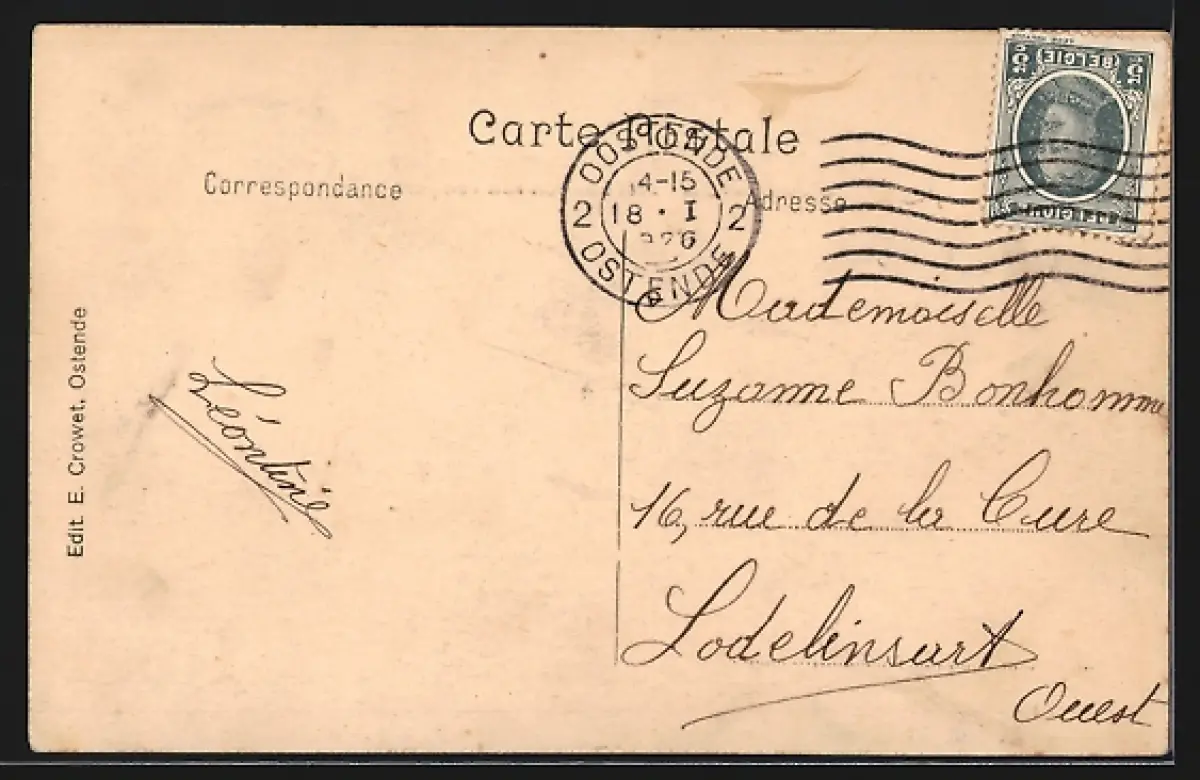 Carte Postale
Correspondance
Adresse
OOSTENDE
14-15
18 · I
2 2
1926
OSTENDE
BELGIE
5c 5c
BELGIQUE
Mademoiselle
Suzanne Bonhomme
16, rue de la Cure
Lodelinsart
Ouest
Léontine
Edit. E. Crowet, Ostende